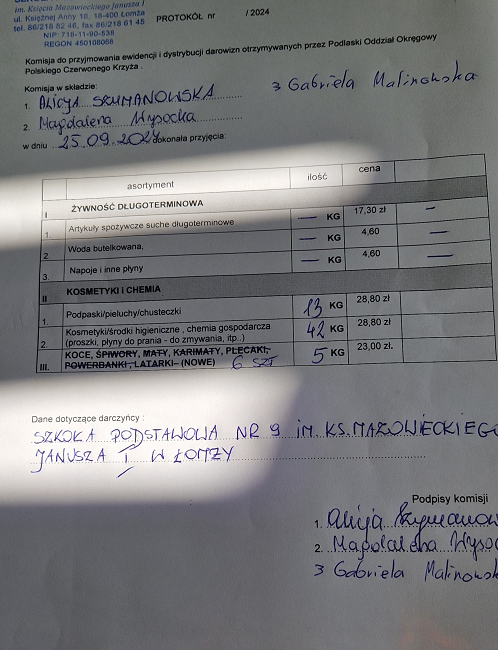 im. Księcia Mazowieckiego Janusza I
ul. Księżnej Anny 18, 18-400 Łomża
tel. 86/218 82 46, fax 86/218 61 45
NIP: 718-11-90-538
REGON 450108068
PROTOKÓŁ nr / 2024
Komisja do przyjmowania ewidencji i dystrybucji darowizn otrzymywanych przez Podlaski Oddział Okręgowy
Polskiego Czerwonego Krzyża .
Komisja w składzie:
3 Gabriela Malinowska
1. ALICJA SZYMANOWSKA
2. Magdalena Wysocka
w dniu 25.09.2024 dokonała przyjęcia:
asortyment ilość cena
I ŻYWNOŚĆ DŁUGOTERMINOWA
1. Artykuły spożywcze suche długoterminowe — KG 17,30 zł —
2. Woda butelkowana, — KG 4,60 —
3. Napoje i inne płyny — KG 4,60 —
II KOSMETYKI i CHEMIA
1. Podpaski/pieluchy/chusteczki 13 KG 28,80 zł
2. Kosmetyki/środki higieniczne , chemia gospodarcza 42 KG 28,80 zł
(proszki, płyny do prania - do zmywania, itp..)
III. KOCE, ŚPIWORY, MATY, KARIMATY, PLECAKI, 5 KG 23,00 zł.
POWERBANKI, LATARKI- (NOWE) 6 SZT
Dane dotyczące darczyńcy :
SZKOŁA PODSTAWOWA NR 9 IM. KS. MAZOWIECKIEGO
JANUSZA I W ŁOMŻY
Podpisy komisji
1. Alicja Szymanow
2. Magdalena Wysoc
3 Gabriela Malinowsk